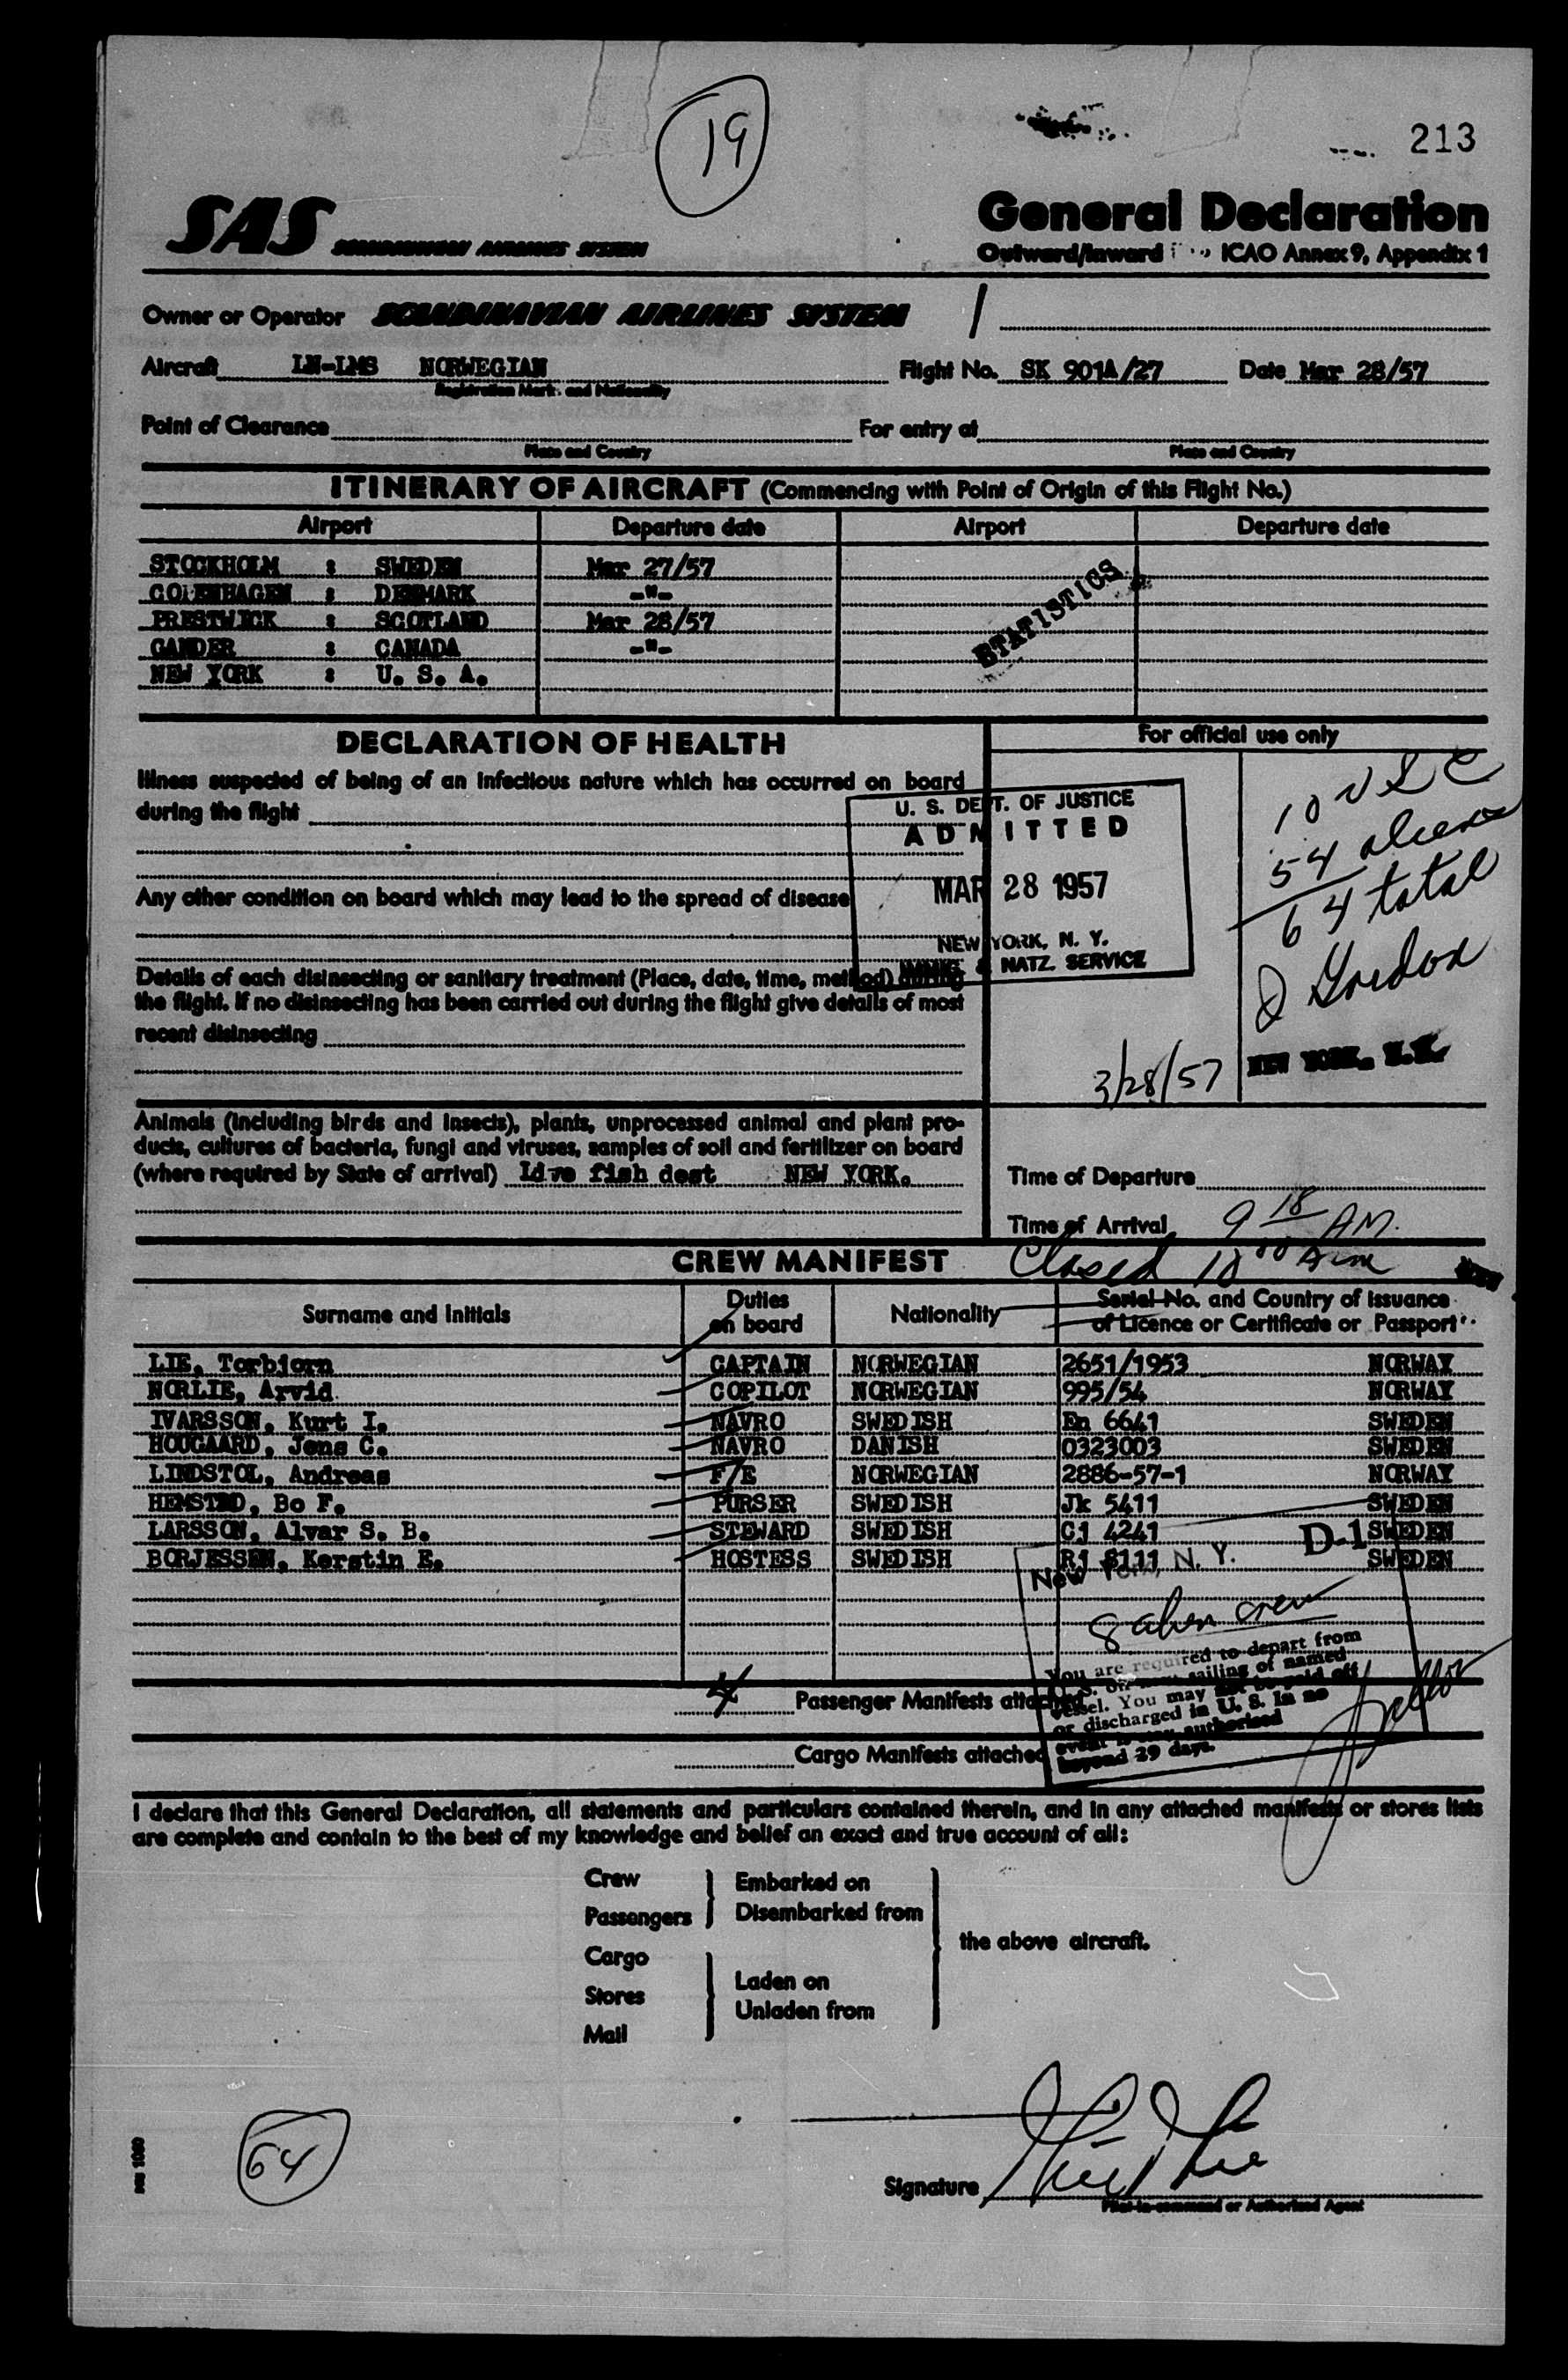 19
213
SAS SCANDINAVIAN AIRLINES SYSTEM
General Declaration
Outward/Inward ICAO Annex 9, Appendix 1
Owner or Operator SCANDINAVIAN AIRLINES SYSTEM
Aircraft LN-LMS NORWEGIAN Flight No. SK 901A/27 Date Mar 28/57
Registration Mark and Nationality
Point of Clearance For entry at
Place and Country Place and Country
ITINERARY OF AIRCRAFT (Commencing with Point of Origin of this Flight No.)
Airport Departure date Airport Departure date
STOCKHOLM : SWEDEN Mar 27/57
COPENHAGEN : DENMARK -"-
PRESTWICK : SCOTLAND Mar 28/57
GANDER : CANADA -"-
NEW YORK : U. S. A.
STATISTICS
DECLARATION OF HEALTH
Illness suspected of being of an infectious nature which has occurred on board
during the flight
Any other condition on board which may lead to the spread of disease
Details of each disinsecting or sanitary treatment (Place, date, time, method) during
the flight. If no disinsecting has been carried out during the flight give details of most
recent disinsecting
For official use only
U. S. DEPT. OF JUSTICE
ADMITTED
MAR 28 1957
NEW YORK, N. Y.
IMMIG. & NATZ. SERVICE
10 USC
54 aliens
64 total
Gordon
3/28/57
NEW YORK, N.Y.
Animals (including birds and insects), plants, unprocessed animal and plant pro-
ducts, cultures of bacteria, fungi and viruses, samples of soil and fertilizer on board
(where required by State of arrival) Live fish dest NEW YORK.
Time of Departure
Time of Arrival 9 18 AM.
CREW MANIFEST
Closed 10 00 Am
Surname and Initials Duties on board Nationality Serial No. and Country of Issuance
of Licence or Certificate or Passport
LIE, Torbjorn CAPTAIN NORWEGIAN 2651/1953 NORWAY
NORLIE, Arvid COPILOT NORWEGIAN 995/54 NORWAY
IVARSSON, Kurt I. NAVRO SWEDISH En 6641 SWEDEN
HOUGAARD, Jens C. NAVRO DANISH 0323003 SWEDEN
LINDSTOL, Andreas F/E NORWEGIAN 2886-57-1 NORWAY
HEMSTAD, Bo F. PURSER SWEDISH Jk 5411 SWEDEN
LARSSON, Alvar S. B. STEWARD SWEDISH Cj 4241 SWEDEN
BORJESSEN, Kerstin E. HOSTESS SWEDISH Rj 8111 SWEDEN
D-1
New York, N. Y.
8 alien crew
You are required to depart from
U. S. on sailing of named
vessel. You may not be paid off
or discharged in U. S. In no
event is stay authorized
beyond 29 days.
4 Passenger Manifests attached
Cargo Manifests attached
I declare that this General Declaration, all statements and particulars contained therein, and in any attached manifests or stores lists
are complete and contain to the best of my knowledge and belief an exact and true account of all:
Crew
Passengers
Embarked on
Disembarked from
Cargo
Stores
Mail
Laden on
Unladen from
the above aircraft.
64
Signature
Pilot-in-command or Authorized Agent